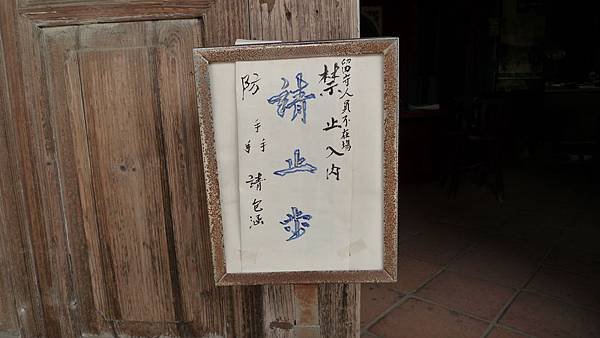 留守人員不在場
禁止入內
請止步
防手手手
請包涵